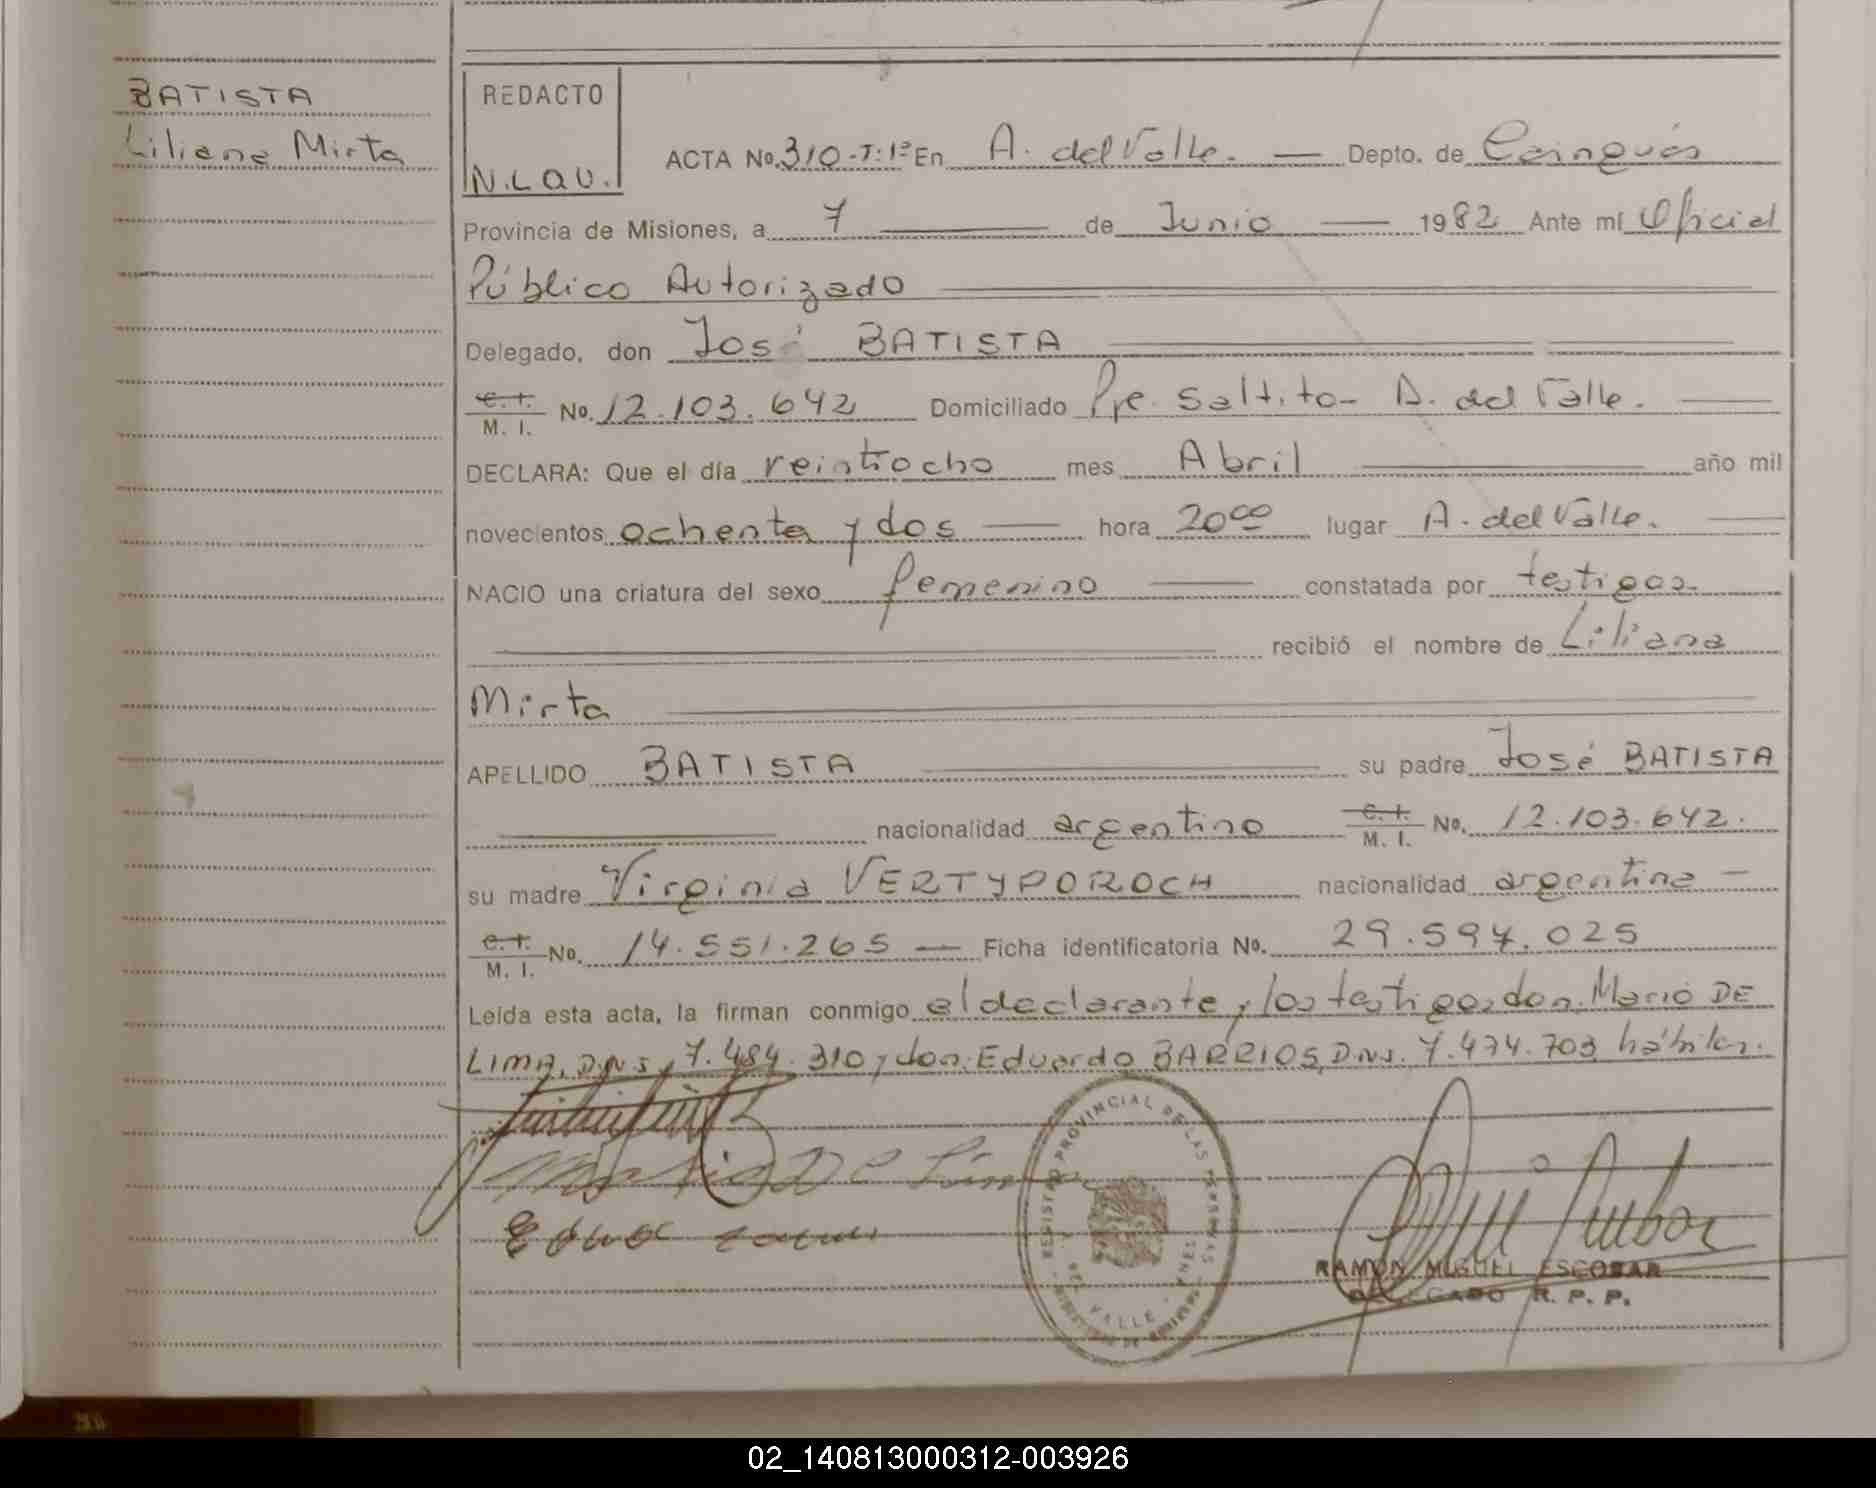 BATISTA
Liliana Mirta
REDACTO
N.L.QU.
ACTA No. 310-T:1º En A. del Valle. — Depto. de Cainguás
Provincia de Misiones, a 7 — de Junio — 1982 Ante mí Oficial
Público Autorizado
Delegado, don José BATISTA
C.I. M.I. No. 12.103.642 Domiciliado Pje. Saltito - A. del Valle.
DECLARA: Que el día veintiocho mes Abril año mil
novecientos ochenta y dos — hora 20oo lugar A. del Valle.
NACIO una criatura del sexo femenino — constatada por testigos.
recibió el nombre de Liliana
Mirta
APELLIDO BATISTA su padre José BATISTA
nacionalidad argentino C.I. M.I. No. 12.103.642.
su madre Virginia VERTYPOROCH nacionalidad argentina —
C.I. M.I. No. 14.551.265 — Ficha identificatoria No. 29.594.025
Leída esta acta, la firman conmigo el declarante y los testigos, don. Mario DE
LIMA, D.N.I. 7.484.310 y don. Eduardo BARRIOS, D.N.I. 7.474.703 hábiles.
Mario De Lima
REGISTRO PROVINCIAL DE LAS PERSONAS
VALLE
RAMON MIGUEL ESCOBAR
DELEGADO R. P. P.
02_140813000312-003926